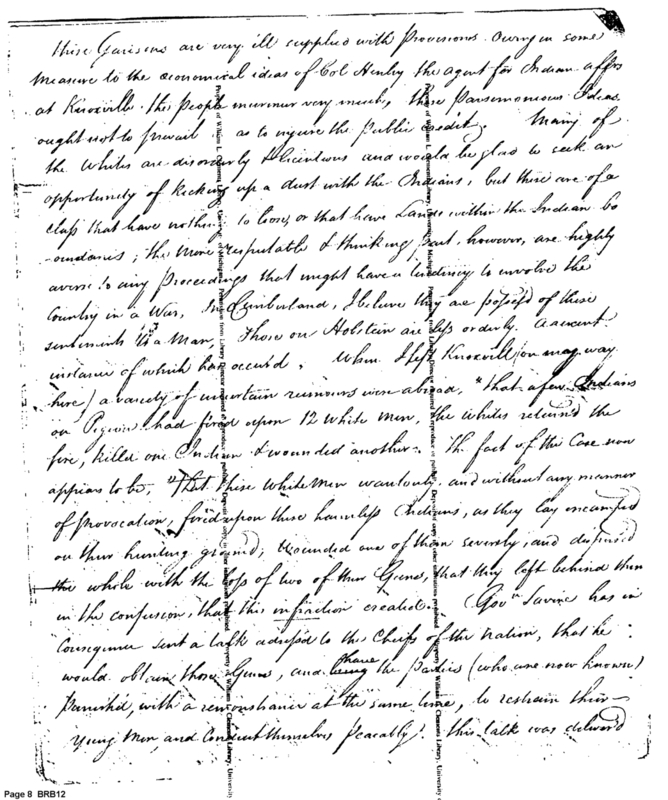 these Garisons are very ill supplied with Provisions. Owing in some
measure to the œconomical ideas of Col Henley the agent for Indian affrs
at Knoxville. the people murmur very much, these Parsemonious Ideas
ought not to prevail so as to injure the Public credit. Many of
the Whites are disorderly & licentious and would be glad to seek an
opportunity of kicking up a dust with the Indians, but these are of a
class that have nothing to loose, or that have Lands within the Indian bo
oundaries; the more respectable & thinking part, however, are highly
averse to any Proceedings that might have a tendency to involve the
Country in a War, In Cumberland, I beleve they are possess'd of these
sentiments to a Man, Those on Holstein are less orderly. a recent
instance of which has occur'd. When I left Knoxville (on my way
here) a variety of uncertain rumours were abroad, "that a few Indians
on Pigeon had fired upon 12 white men, the whites returned the
fire, killed one Indian & wounded another. The fact of the Case now
appears to be, "That these White Men wantonly and without any manner
of provocation, fired upon these harmless Indians, as they lay encamped
on their hunting ground, wounded one of them severely, and dispersed
the whole with the loss of two of their Guns, that they left behind them
in the confusion, that this infraction created. Govr Savire has in
Consequence sent a talk adress'd to the Cheifs of the nation, that he
would obtain those Guns, and have the Parties (who are now known)
Punish'd, with a remonstrance at the same time, to restrain their
Young Men, and Conduct themselves Peacably. this talk was deliver'd
Page 8 BRB12